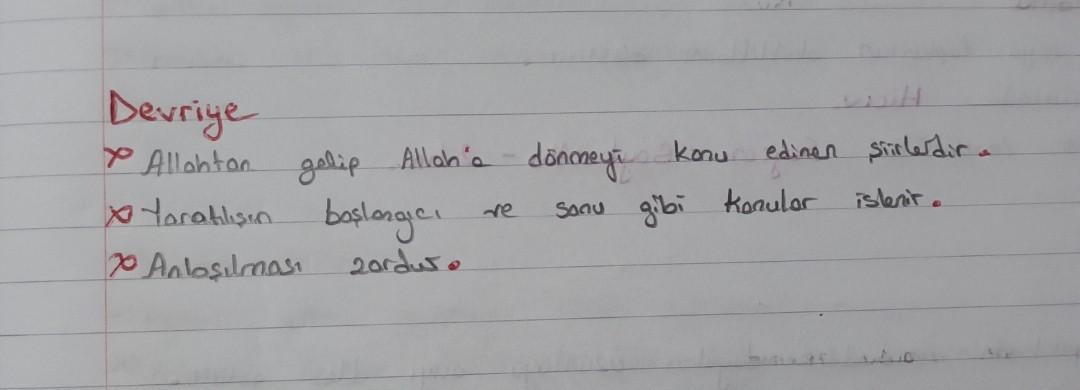 Devriye
x Allahtan gelip Allah'a dönmeyi konu edinen şiirlerdir.
x Yaratılışın başlangıcı ve sonu gibi konular işlenir.
x Anlaşılması zordur.